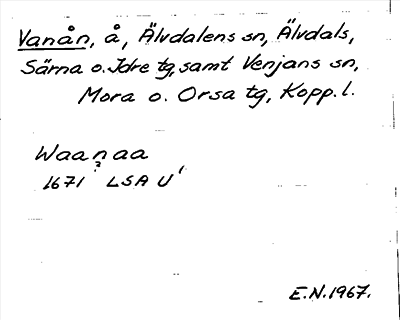 Vanån, å, Älvdalens sn, Älvdals,
Särna o. Idre tg, samt Venjans sn,
Mora o. Orsa tg, Kopp. l.
Waanaa
?
1671 LSA U'
E.N. 1967.